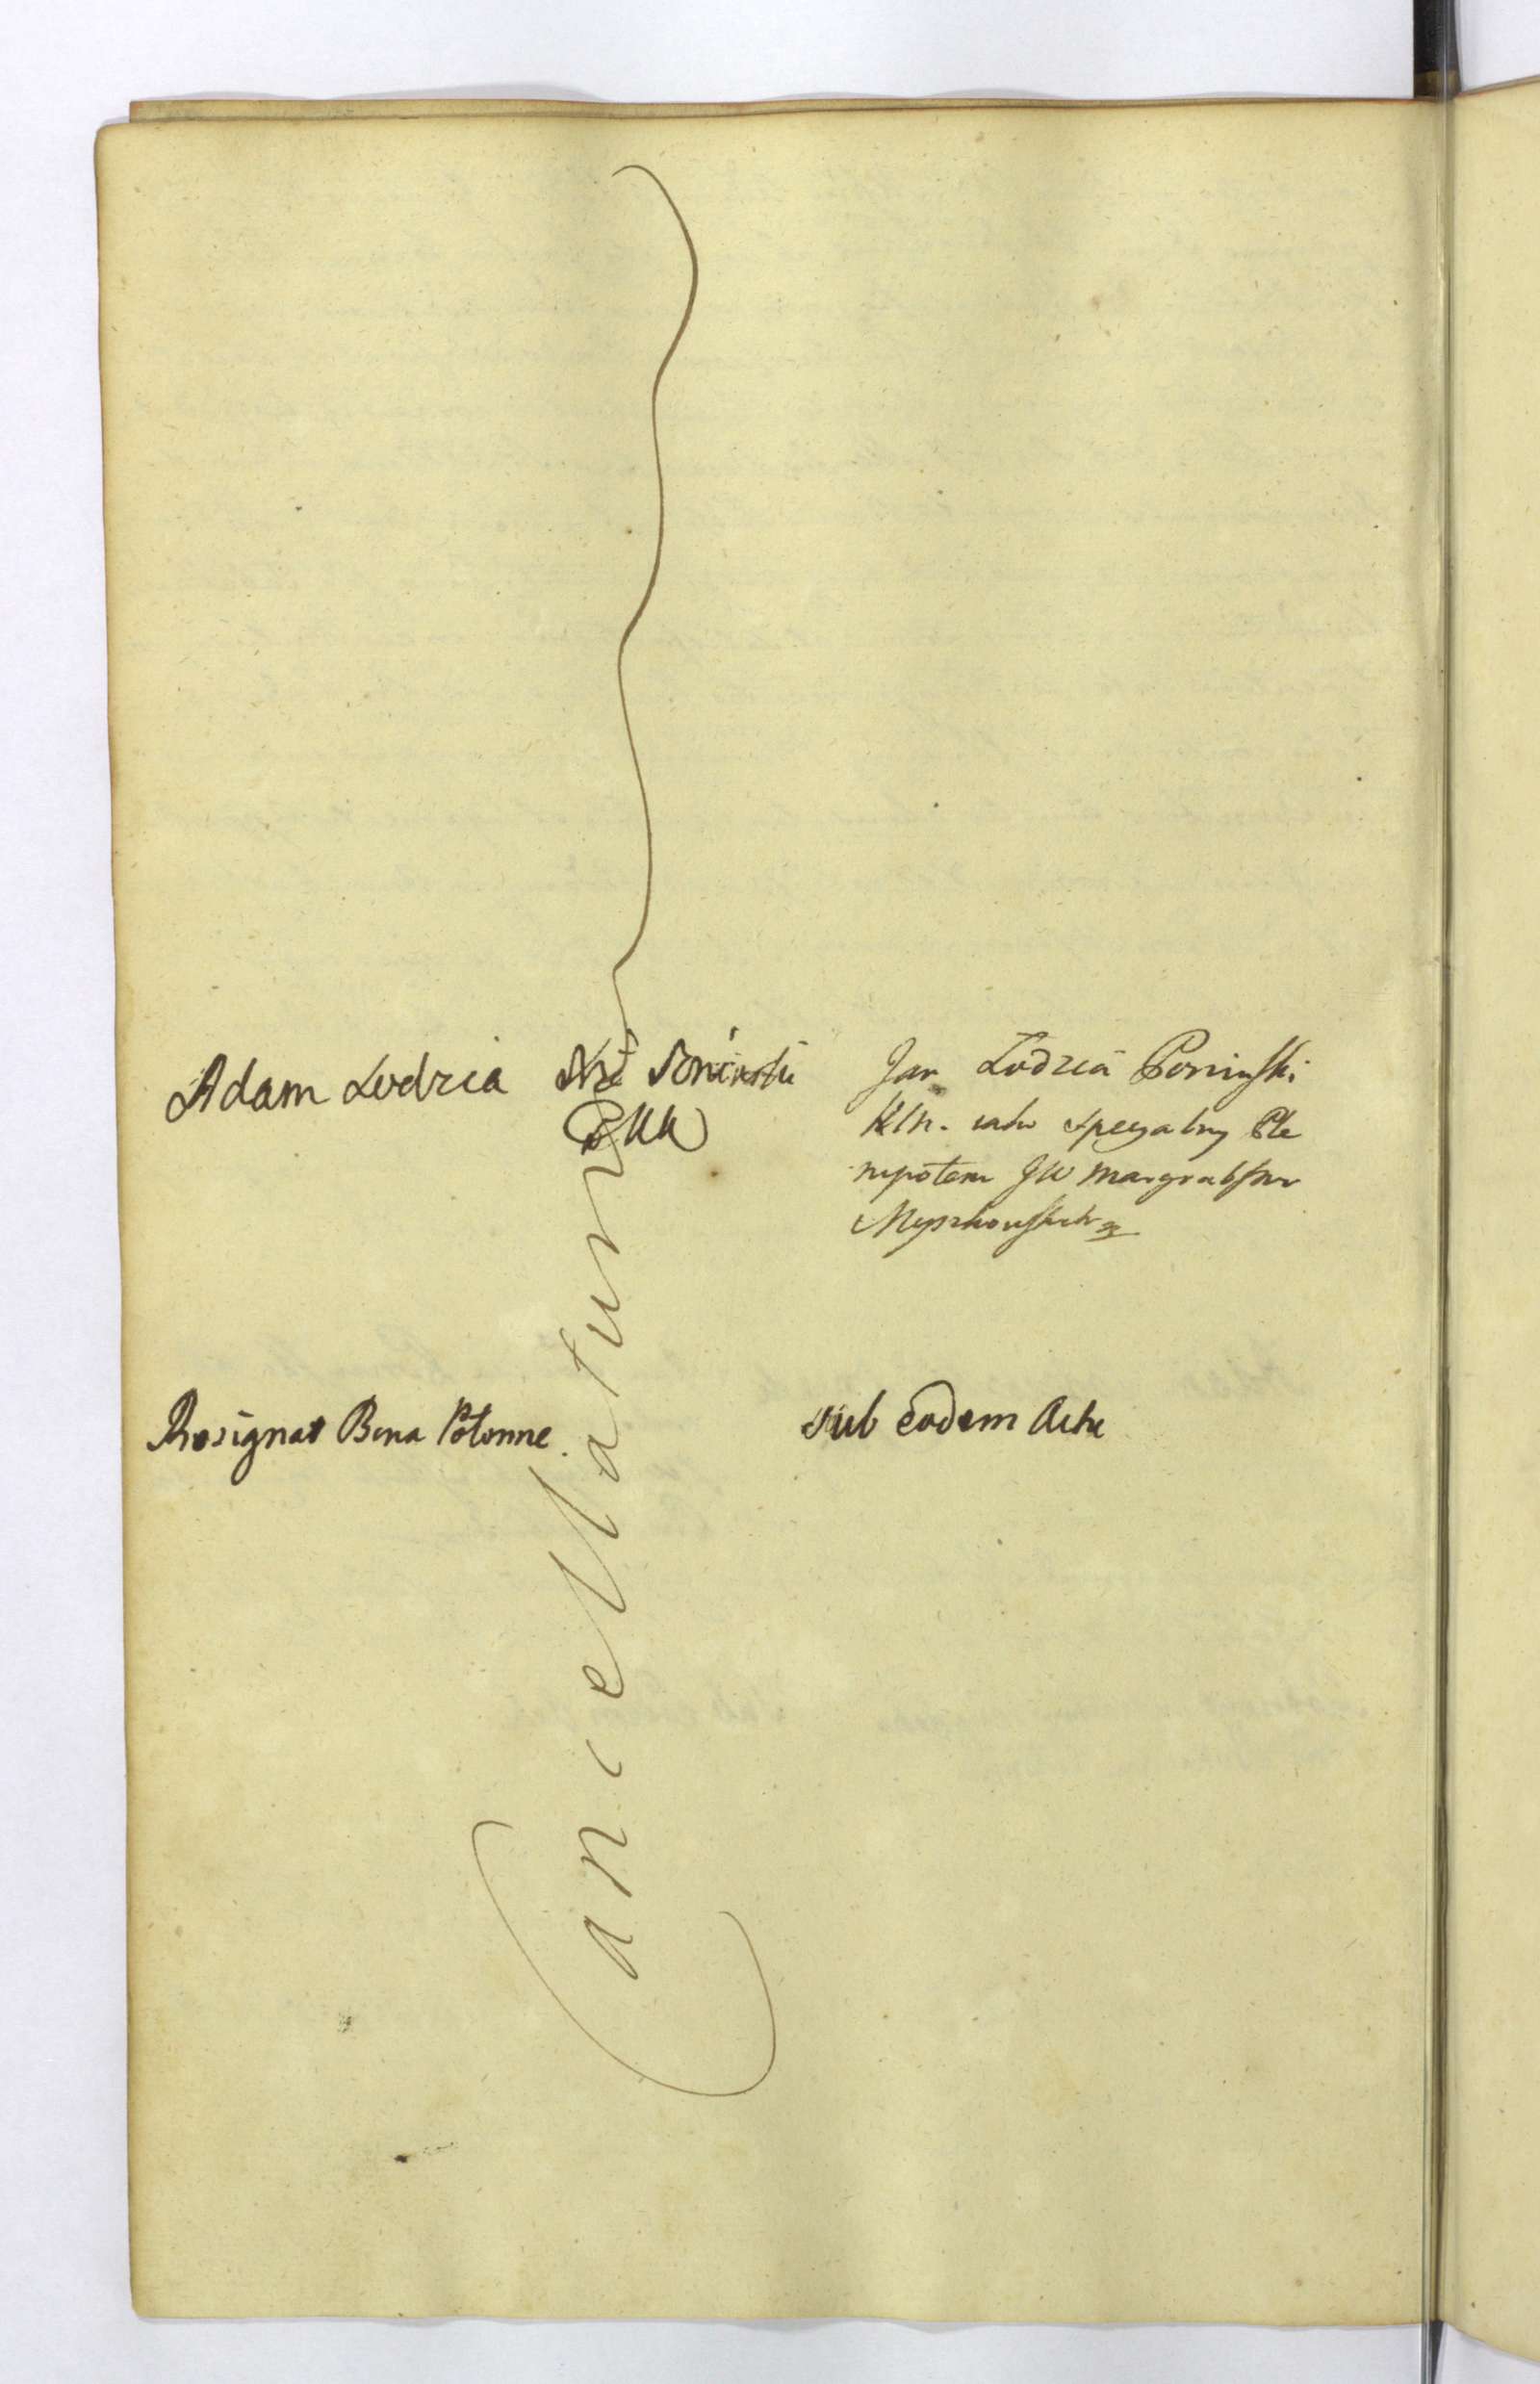 Adam Lodzia Xże Poninski
PWK
Jan Łodzia Poninski
KLK. iako specyalny Ple
nipotent JW Margrabstwa
Myszkowskich
Resignat Bona Połonne
sub eodem Actu
Cancellatum